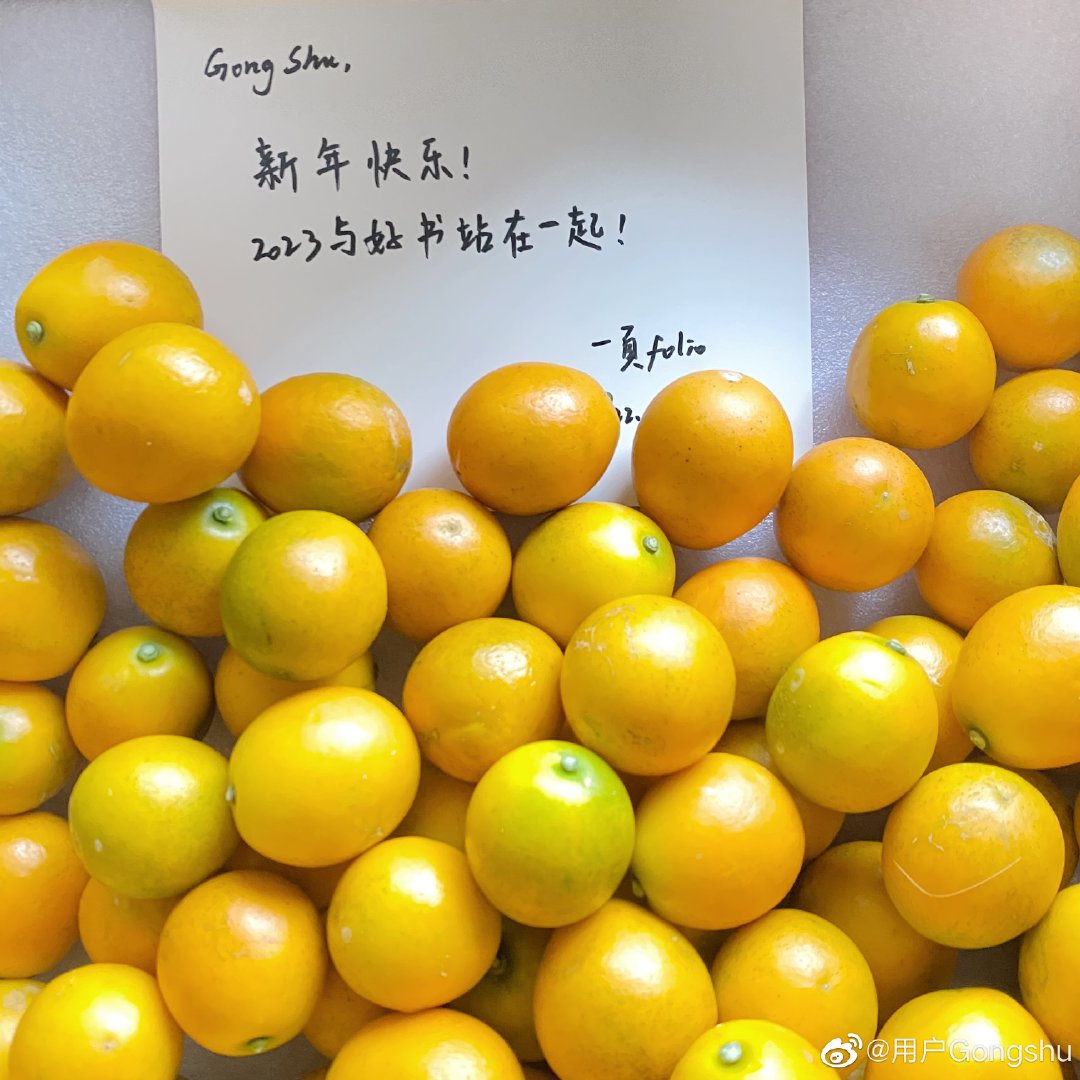 Gong Shu,
新年快乐!
2023与好书站在一起!
一頁folio
@用户Gongshu